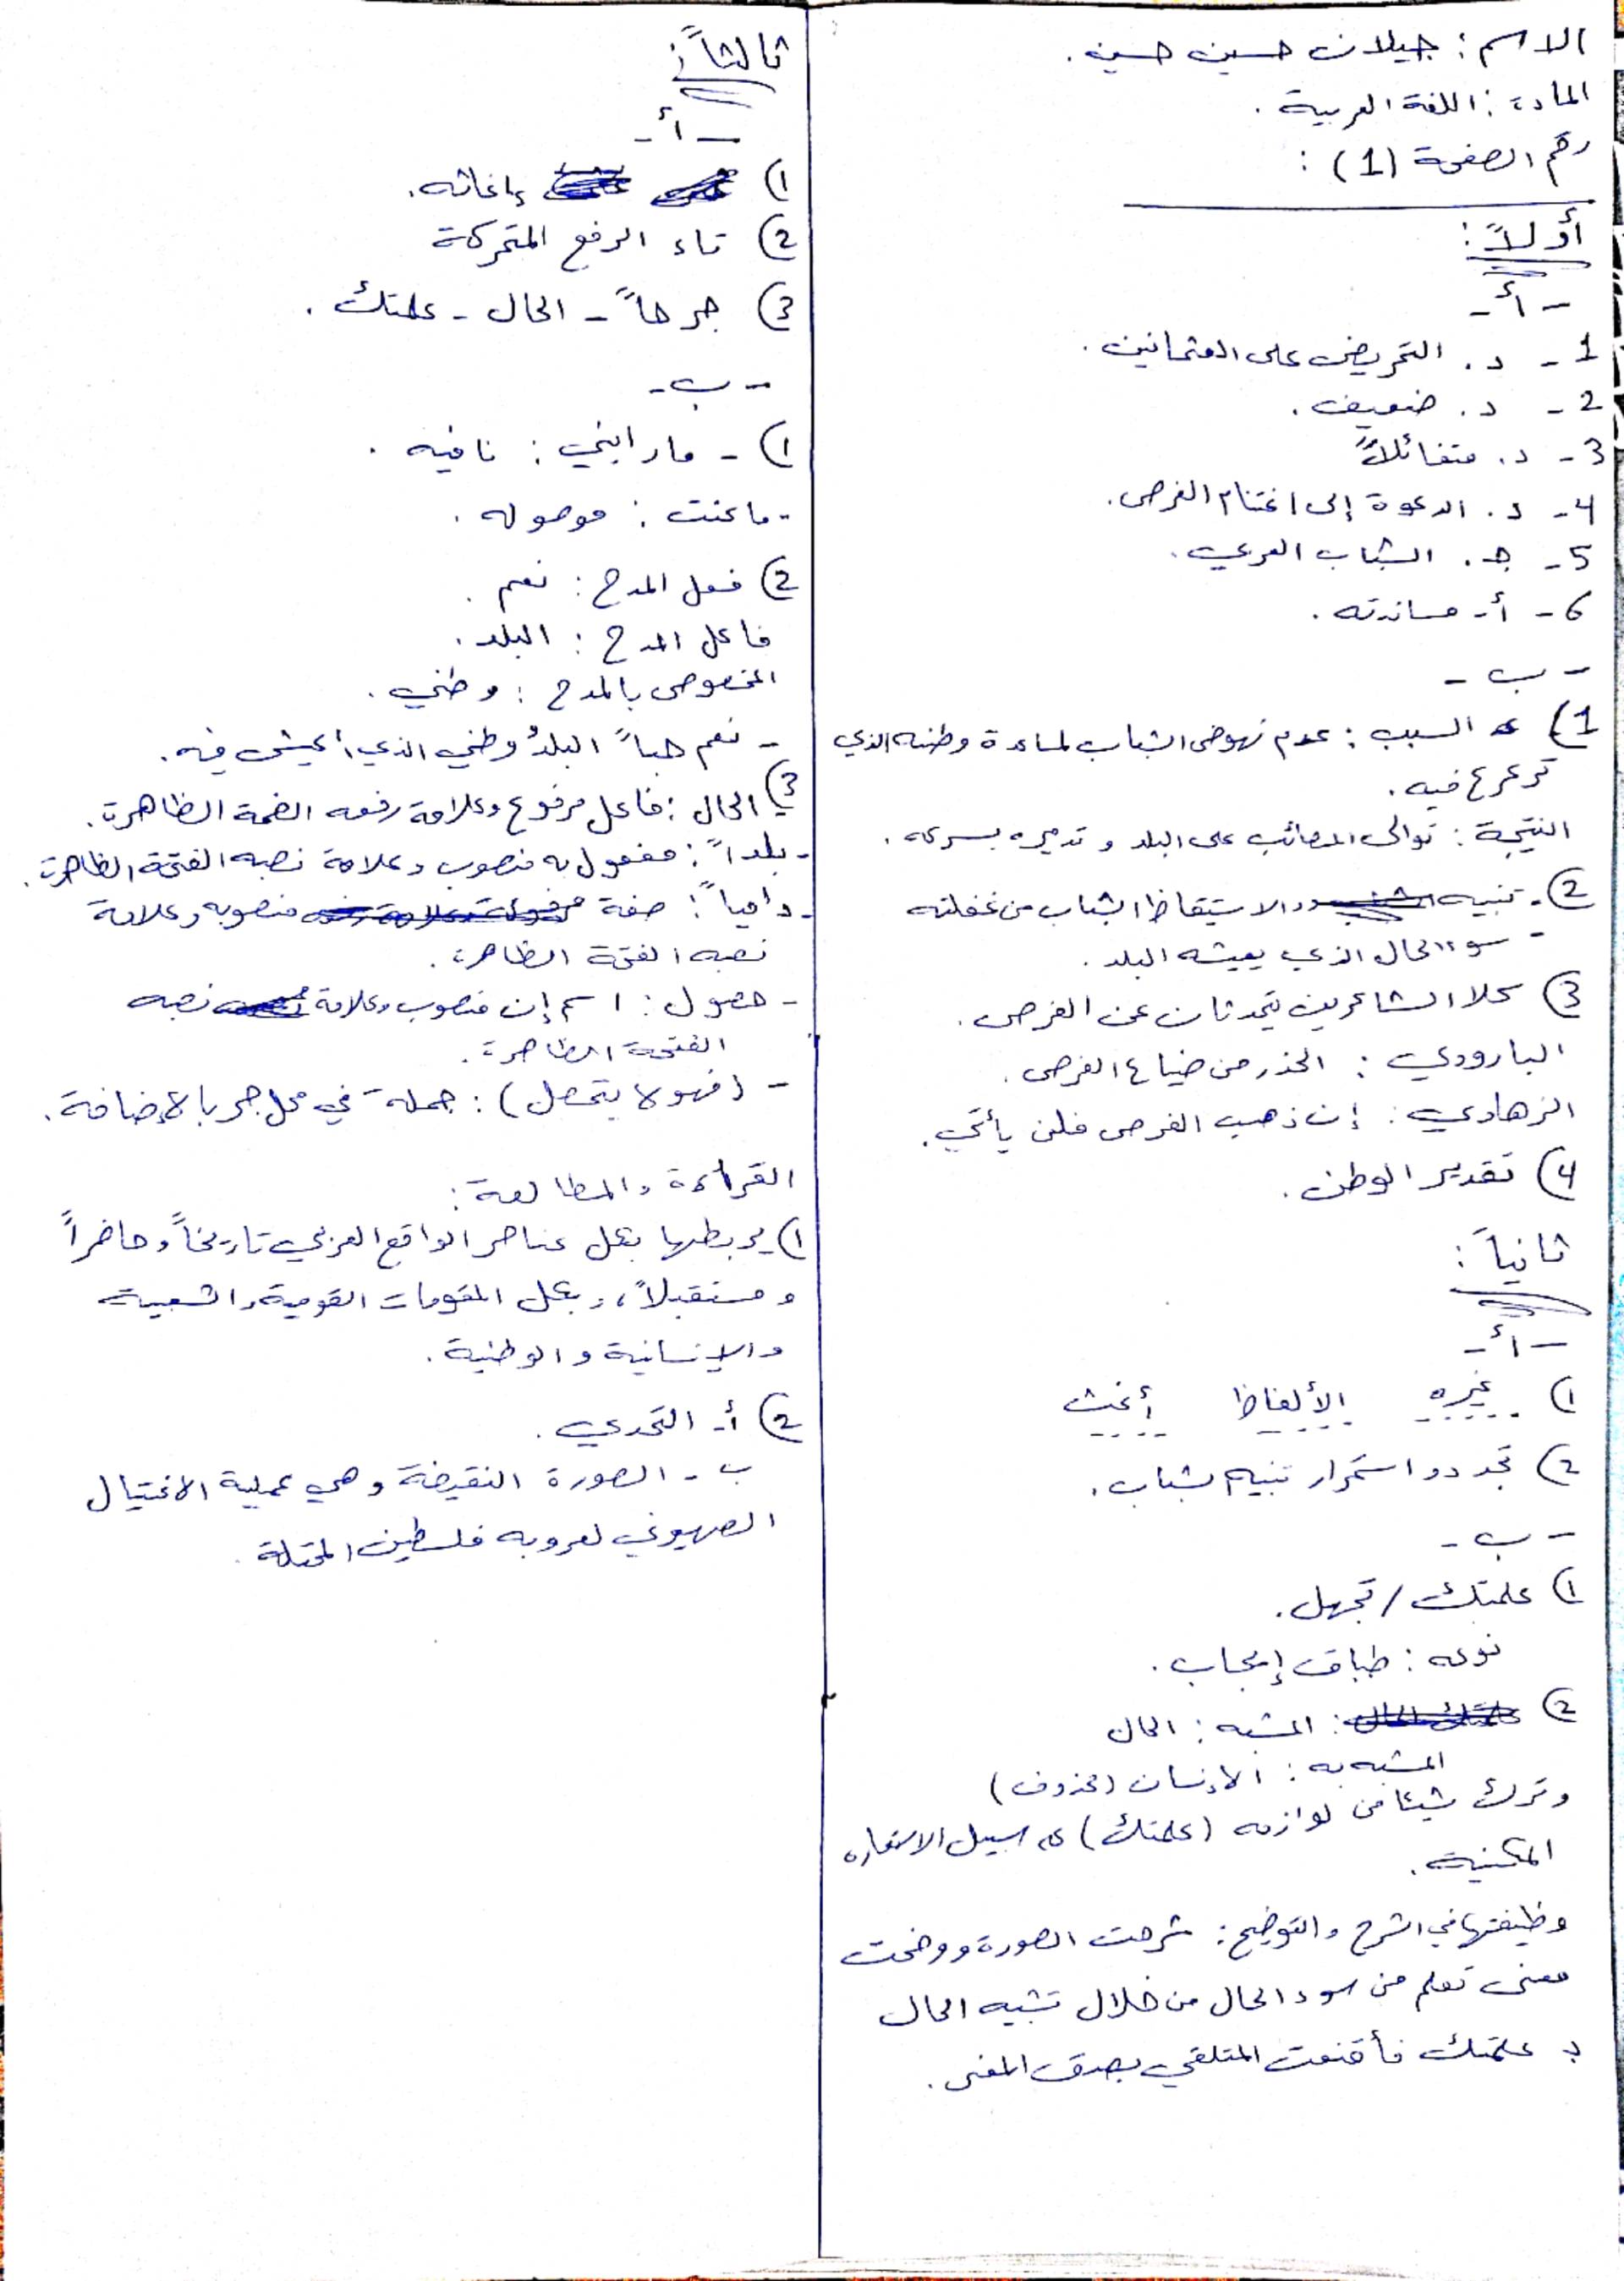 الاسم : جيلان حسين حسين .
المادة : اللغة العربية .
رقم الصفحة (1) :
أولاً :
- أ -
1 - د . التحريض على العثمانين .
2 - د . ضعيف .
3 - د . متفائلاً
4 - د . الدعوة إلى اغتنام الفرص .
5 - هـ . الشباب العربي .
6 - أ - مساندته .
- ب -
1) السبب : عدم نهوض الشباب لمساعدة وطنه الذي
ترعرع فيه .
النتيجة : توالى المصائب على البلد و تدميره بسرعه .
2) - تنبيه والاستيقاظ الشباب من غفلته
- سوء الحال الذي يعيشه البلد .
3) كلا الشاعرين يتحدثان عن الفرص .
البارودي : الحذر من ضياع الفرص .
الزهاوي : إن ذهب الفرص فلن يأتي .
4) تقدير الوطن .
ثانياً :
- أ -
1) غيره الألفاظ أغث
2) تجدد و استمرار تنبيه شباب .
- ب -
1) علمتك / تجهل .
نوعه : طباق إيجاب .
2) : المشبه : الحال
المشبه به : الإنسان (محذوف)
وترك شيئا من لوازمه (علمتك) على سبيل الاستعاره
المكنية .
وظيفتها في الشرح والتوضيح : شرحت الصورة ووضحت
معنى تعلم من سوء الحال من خلال تشبيه الحال
بـ علمتك فأقنعت المتلقي بصدق المعنى .
ثالثاً :
- أ -
1) إغاثه .
2) تاء الرفع المتحركة
3) جرحاً - الحال - علمتك .
- ب -
1) - ما رابني : نافيه .
- ما عنت : موصوله .
2) فعل المدح : نعم .
فاعل المدح : البلد .
المخصوص بالمدح : وطني .
- نعم حباً البلدُ وطني الذي أعيش فيه .
3) الحال : فاعل مرفوع وعلامة رفعه الضمة الظاهرة .
- بلداً : مفعول به منصوب وعلامة نصبه الفتحة الظاهرة .
- دامياً : صفة منصوبه وعلامة
نصبه الفتحة الظاهرة .
- حصول : اسم إن منصوب وعلامة نصبه
الفتحة الظاهرة .
- (فهو لا يتحصل) : جملة في محل جر بالإضافة .
القراءة والمطالعة :
1) يربطها بكل عناصر الواقع العربي تاريخاً وحاضراً
و مستقبلاً ، وبكل المقومات القومية والشعبية
والإنسانية والوطنية .
2) أ - التحدي .
ب - الصورة النقيضة وهي عملية الاغتيال
الصهيوني لعروبه فلسطين المحتلة .